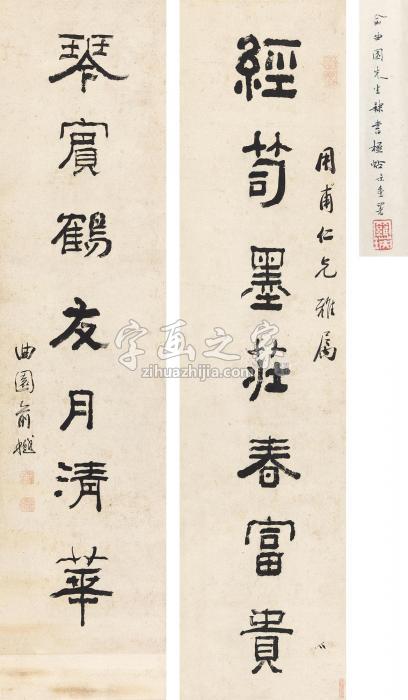 俞曲園先生隸書楹
用甫仁兄雅屬
經笥墨莊春富貴
琴賓鶴友月清華
曲園俞樾
字画之家
zihuazhijia.com